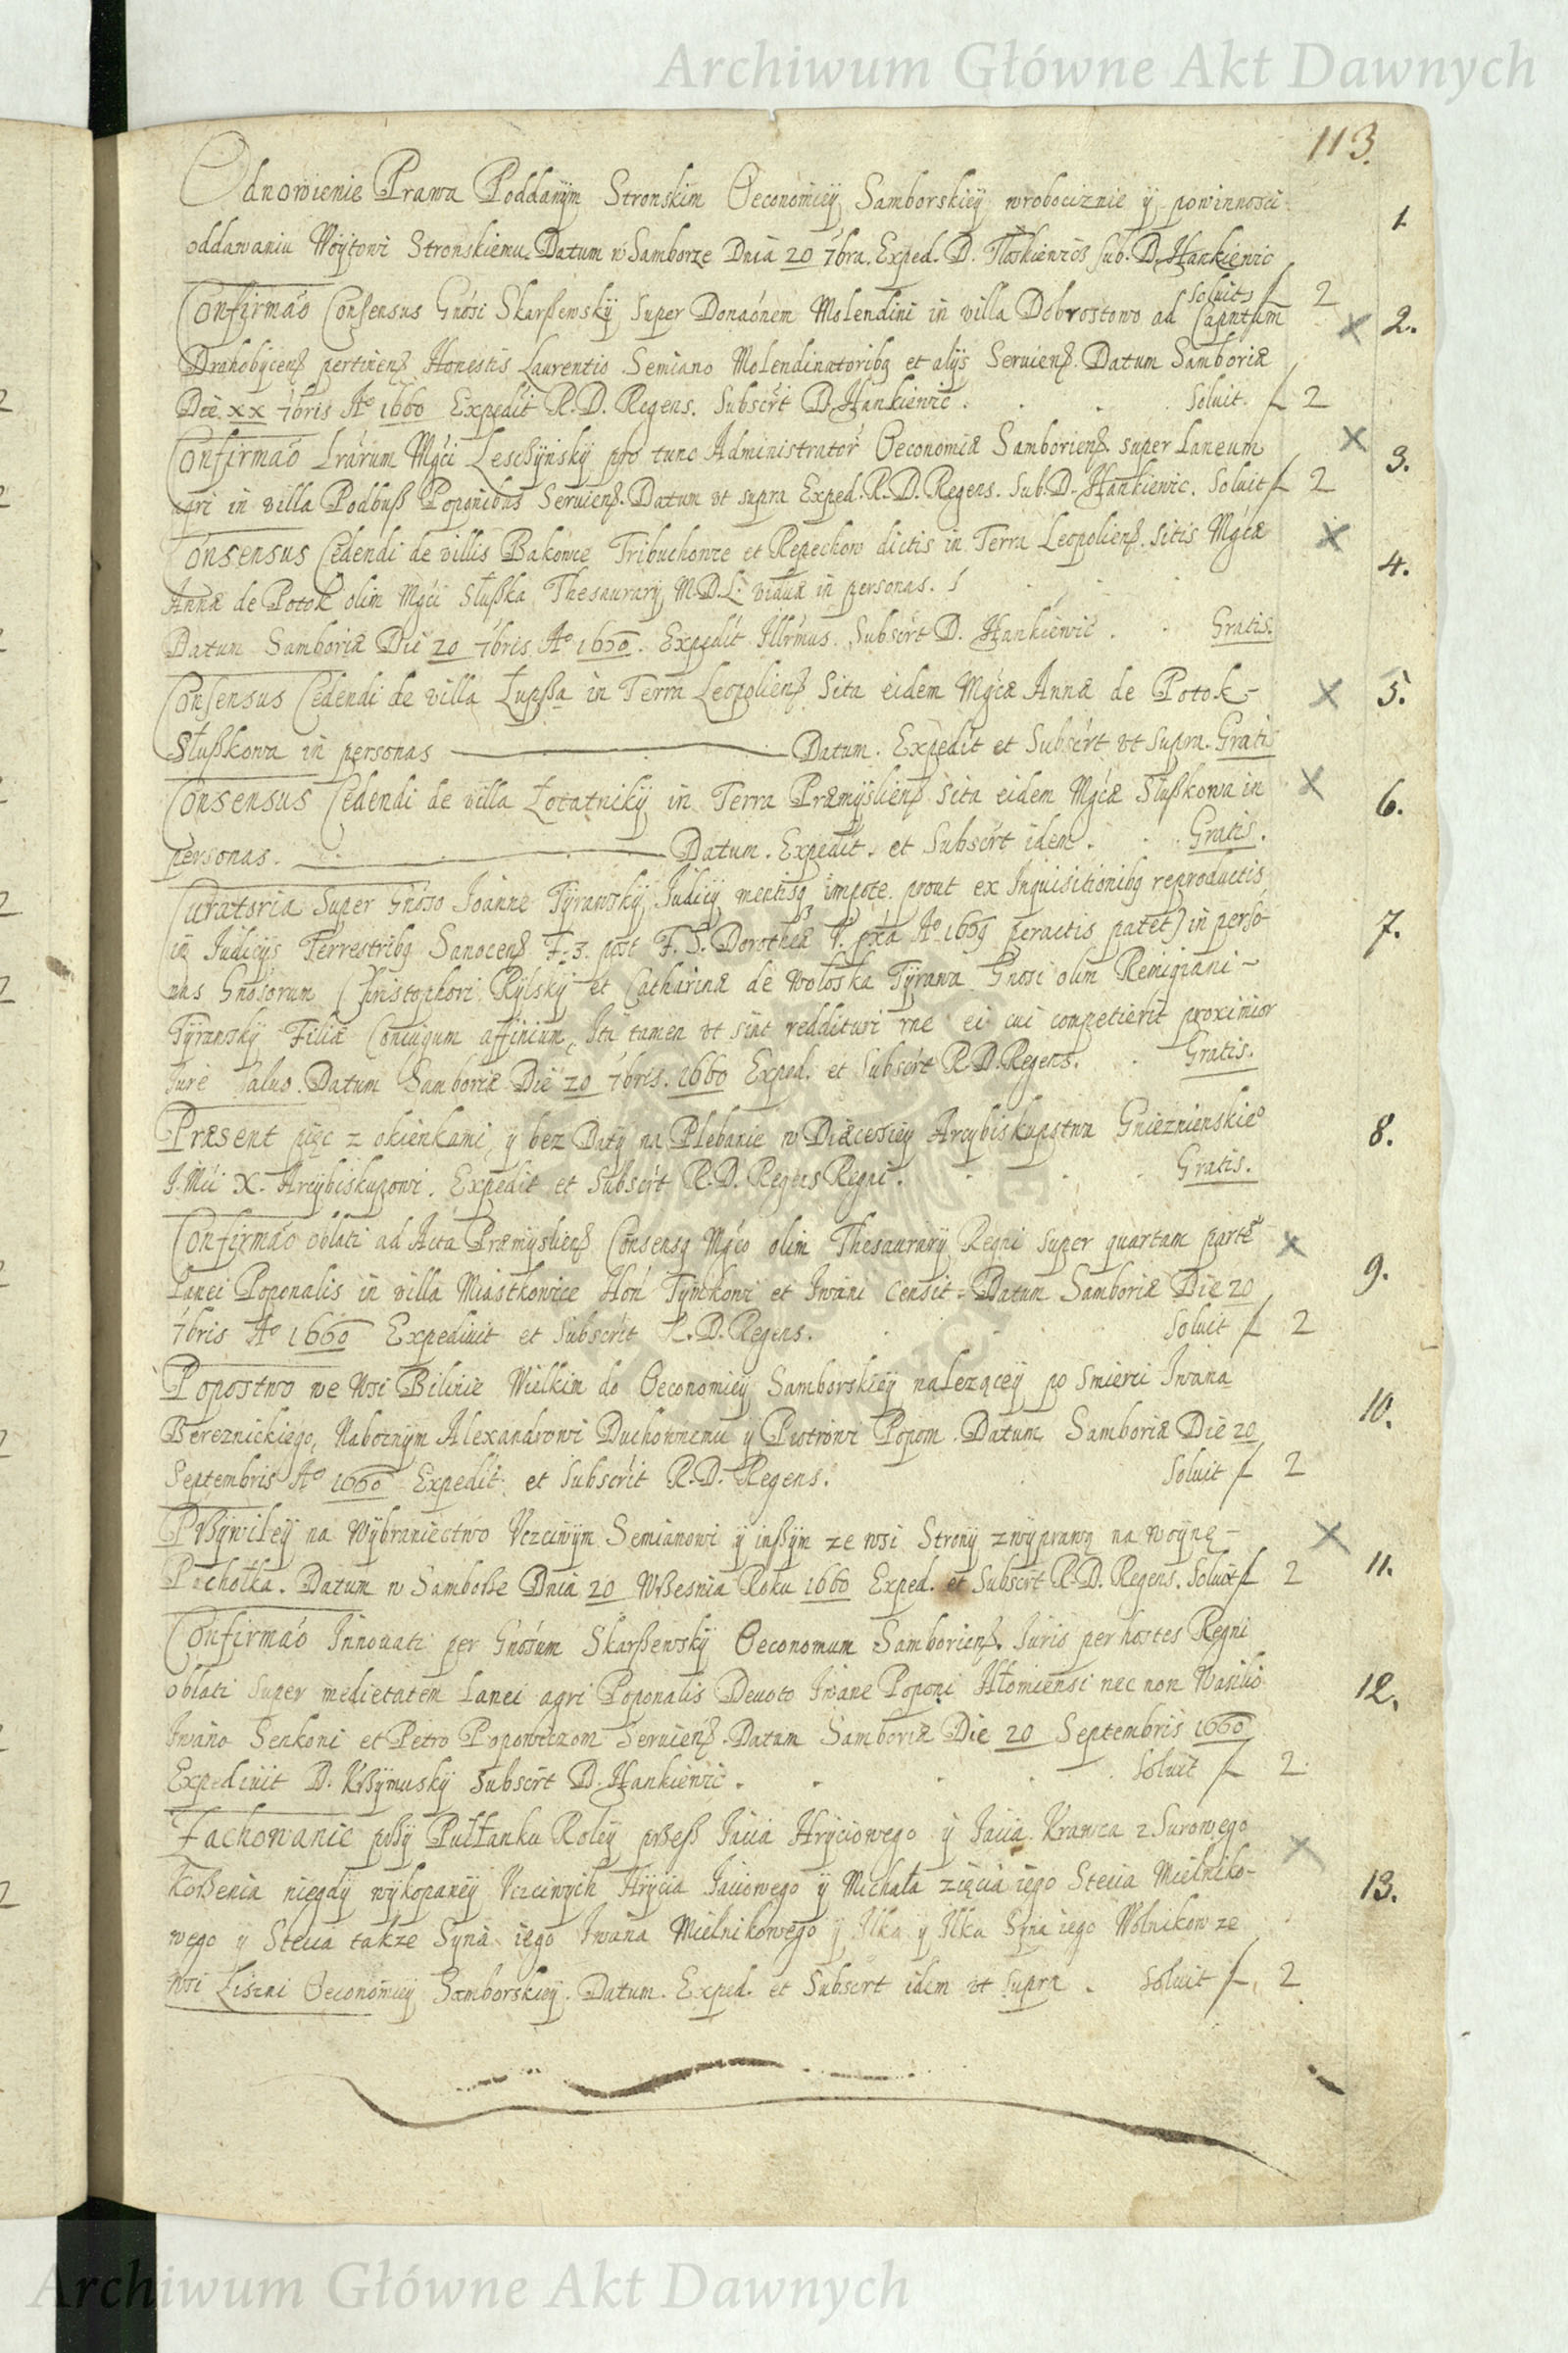 Archiwum Główne Akt Dawnych
113.
Odnowienie Prawa Poddanÿm Stronskim Oeconomieÿ Samborskieÿ w robociznie ÿ powinnosci
1.
oddawaniu Woÿtowi Stronskiemu. Datum w Samborze Dnia 20 7bra. Exped. D. Sub. D. Hankiewic
Soluit f 2
Confirmao Consensus Gnosi Skarßewskÿ Super Donaonem Molendini in villa Dobrostowo ad Capntum
2.
Drahobÿcenß pertinenß Honestis Laurentio Semiano Molendinatoribq et alÿs Seruienß. Datum Samboriæ
Die xx 7bris Aº 1660 Expedit R. D. Regens. Subscrt D. Hankiewic. Soluit f 2
Confirmao Lrarum Mgci Leschÿnskÿ pro tunc Administrator Oeconomiæ Samborienß. super Laneum
3.
agri in villa Podbuß Poponibus Seruienß. Datum vt supra Exped. R. D. Regens. Sub. D. Hankiewic. Soluit f 2
Consensus Cedendi de villis Bakowce Tribuchowce et Repechow dictis in Terra Leopolienß. sitis Mgcæ
4.
Annæ de Potok olim Mgci Słußka Thesaurarÿ M.D.L. viduæ in personas.
Datum Samboriæ Die 20 7bris Aº 1660. Expedit Illrmus. Subscrt D. Hankiewic. Gratis.
Consensus Cedendi de villa Łupßa in Terra Leopolienß Sita eidem Mgcæ Annæ de Potok -
5.
Słußkowa in personas Datum. Expedit et Subscrt vt Supra. Gratis
Consensus Cedendi de villa Łotatnikÿ in Terra Præmÿslienß Sita eidem Mgcæ Słußkowa in
6.
personas. Datum. Expedit. et Subscrt idem. Gratis.
Curatoria Super Gnoso Joanne Tÿrawskÿ Judicÿ mentisq impote. prout ex Inquisitionibq reproductis
in Judicÿs Terrestribq Sanocenß F. 3. post F. S. Dorotheæ V. pxa Aº 1669 peractis patet) in perso-
7.
nas Gnosorum Christophori Rÿlskÿ et Catharinæ de Wołoska Tÿrawa Gnosi olim Remigiani -
Tÿrawskÿ Filiæ Coniugum affinium, Ita tamen vt sint reddituri rne ei cui competierit proximior
Jure Saluo. Datum Samboriæ Die 20 7bris. 1660 Exped. et Subscrt R. D. Regens. Gratis.
Præsent pięc z okienkami, ÿ bez Datÿ na Plebanie w Diæcesieÿ Arcybiskupstwa Gnieznienskieº
8.
J. Mci X. Arcÿbiskupowi. Expedit et Subscrt R. D. Regens Regni. Gratis.
Confirmao oblati ad Acta Præmÿslienß Consensq Mgco olim Thesaurarÿ Regni super quartam parte
9.
Lanei Poponalis in villa Miastkowice Hon Tÿmkowi et Iwani Censit = Datum Samboriæ Die 20
7bris Aº 1660 Expediuit et Subscrit R. D. Regens. Soluit f 2
Popostwo we Wsi Bilinie Wielkim do Oeconomieÿ Samborskieÿ nalezącey po smierci Iwana
10.
Bereznickiego, Naboznÿm Alexandrowi Duchownemu ÿ Piotrowi Popom. Datum Samboriæ Die 20
Septembris Aº 1660 Expedit et Subscrit R. D. Regens. Soluit f 2
Prßÿwileÿ na Wÿbraniectwo Vczciwÿm Semianowi ÿ inßÿm ze wsi Stronÿ z wÿprawą na woÿnę -
11.
Pachołka. Datum w Samborße Dnia 20 Wrßesnia Roku 1660 Exped. et Subscrt R. D. Regens. Soluit f 2
Confirmao Innouati per Gnosum Skarßewskÿ Oeconomum Samborienß. Iuris per hostes Regni
oblati super medietatem Lanei agri Poponalis Deuoto Iwane Poponi Hłomiensi nec non Wasilio
12.
Iwano Senkoni et Petro Popowiczom Seruienß. Datum Samboriæ Die 20 Septembris 1660
Expediuit D. Krßÿmuskÿ Subscrt D. Hankiewic. Soluit f 2.
Zachowanie prßÿ Pułłanku Roleÿ prßeß Jacia Hrÿciowego ÿ Jacia Krawca z Surowego
Korßenia niegdÿ wÿkopaneÿ Vczciwÿch Hrÿcia Jaciowego ÿ Michała zięcia iego Stecia Mielniko-
13.
wego ÿ Stecia takze Sÿna iego Iwana Mielnikowego ÿ Ilka ÿ Ilka Sÿna iego Wolnikow ze
wsi Liszni Oeconomieÿ Samborskieÿ. Datum. Exped. et Subscrt idem vt supra. Soluit f 2
Archiwum Główne Akt Dawnych